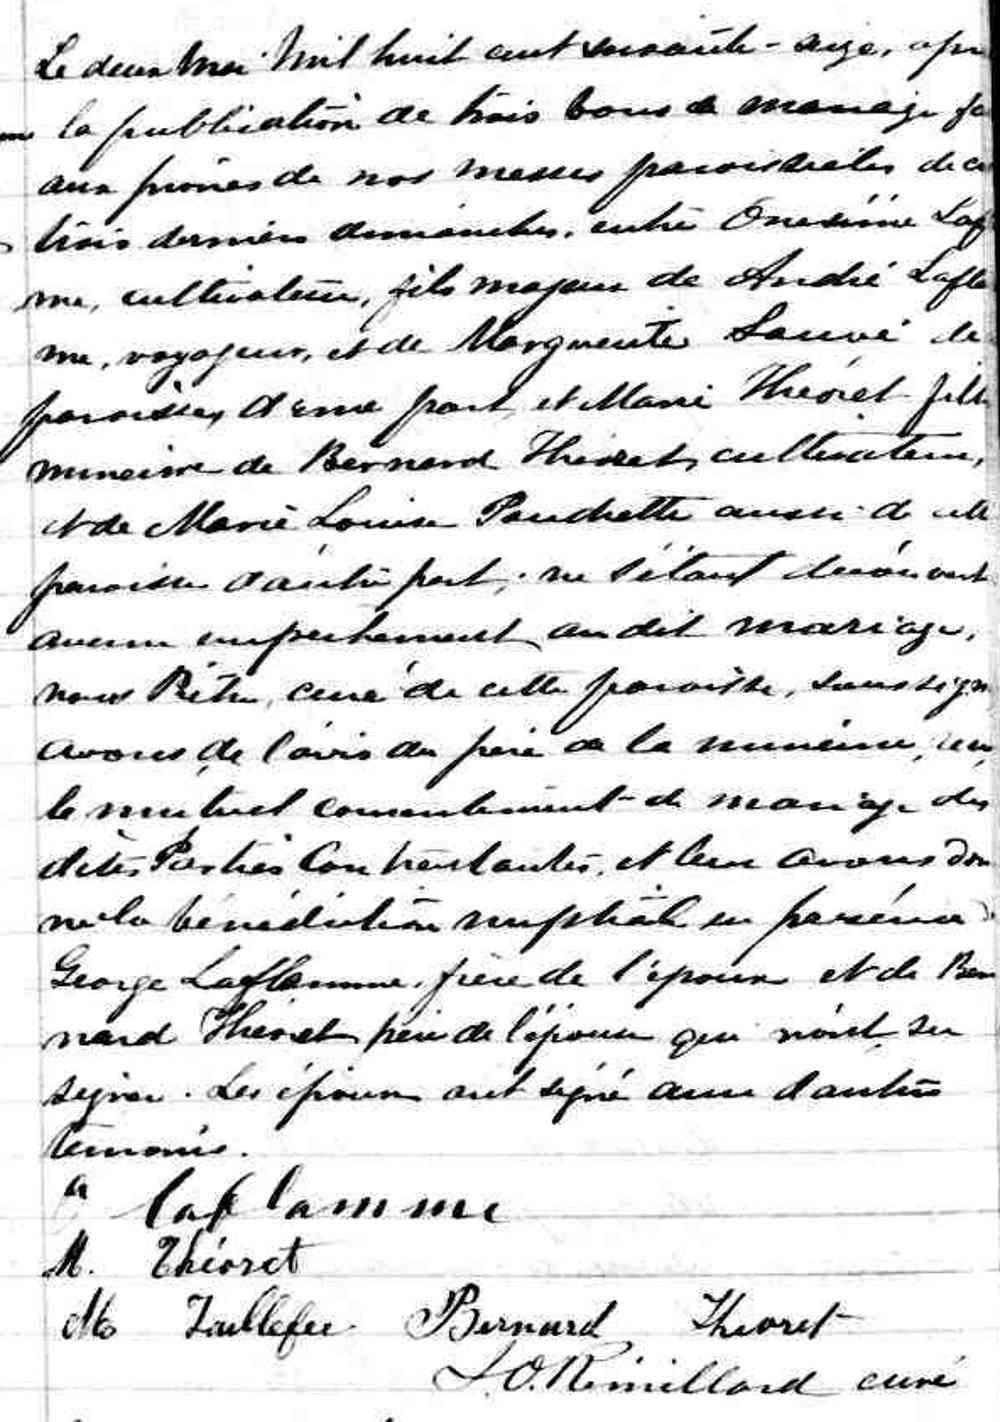 Le deux Mai Mil huit cent soixante-seize, apr
la publication de trois bans de mariage fa
aux prônes de nos messes paroissiales de ce
trois derniers dimanches, entre Onesime Laf
me, cultivateur, fils majeur de André Lafla
me, voyageur, et de Marguerite Sauvé de
paroisse, d'une part, et Marie Théoret fille
mineure de Bernard Théoret, cultivateur,
et de Marie Louise Pouchette aussi de cette
paroisse d'autre part; ne s'étant découvert
aucun empêchement au dit mariage,
nous Prêtre, curé de cette paroisse, soussign
avons de l'avis du père de la mineure, reçu
le mutuel consentement de mariage des
dites Parties Contractantes, et leur avons don
né la bénédiction nuptiale en présence d
George Laflamme, frère de l'époux et de Ber
nard Théoret père de l'épouse qui n'ont su
signer. Les époux ont signé avec d'autres
témoins.
laflamme
M. Théoret
Taillefer Bernard Theoret
L.O. Rémillard curé